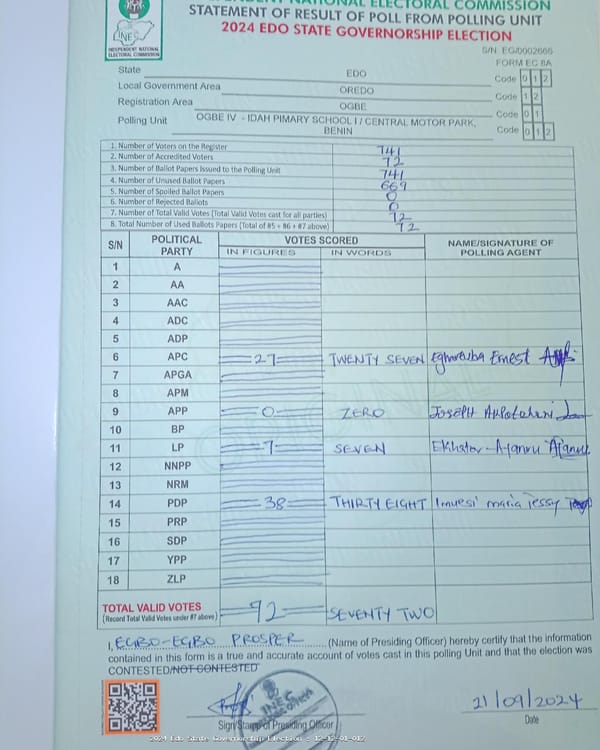 INEC
INDEPENDENT NATIONAL
ELECTORAL COMMISSION
INDEPENDENT NATIONAL ELECTORAL COMMISSION
STATEMENT OF RESULT OF POLL FROM POLLING UNIT
2024 EDO STATE GOVERNORSHIP ELECTION
S/N. EG/0002666
FORM EC 8A
State EDO Code 0 1 2
Local Government Area OREDO Code 1 2
Registration Area OGBE Code 0 1
Polling Unit OGBE IV - IDAH PIMARY SCHOOL I / CENTRAL MOTOR PARK, BENIN Code 0 1 2
1. Number of Voters on the Register 741
2. Number of Accredited Voters 72
3. Number of Ballot Papers Issued to the Polling Unit 741
4. Number of Unused Ballot Papers 669
5. Number of Spoiled Ballot Papers 0
6. Number of Rejected Ballots 0
7. Number of Total Valid Votes (Total Valid Votes cast for all parties) 72
8. Total Number of Used Ballots Papers (Total of #5 + #6 + #7 above) 72
S/N POLITICAL PARTY VOTES SCORED NAME/SIGNATURE OF POLLING AGENT
IN FIGURES IN WORDS
1 A
2 AA
3 AAC
4 ADC
5 ADP
6 APC 27 TWENTY SEVEN Ernest
7 APGA
8 APM
9 APP 0 ZERO JOSEPH
10 BP
11 LP 7 SEVEN
12 NNPP
13 NRM
14 PDP 38 THIRTY EIGHT maria Tessy
15 PRP
16 SDP
17 YPP
18 ZLP
TOTAL VALID VOTES 72 SEVENTY TWO
(Record Total Valid Votes under #7 above)
I, EGBO-EGBO PROSPER (Name of Presiding Officer) hereby certify that the information
contained in this form is a true and accurate account of votes cast in this polling Unit and that the election was
CONTESTED/NOT CONTESTED
INEC
21/09/2024
Sign/Stamp of Presiding Officer Date
2024 Edo State Governorship Election - 12-12-01-012